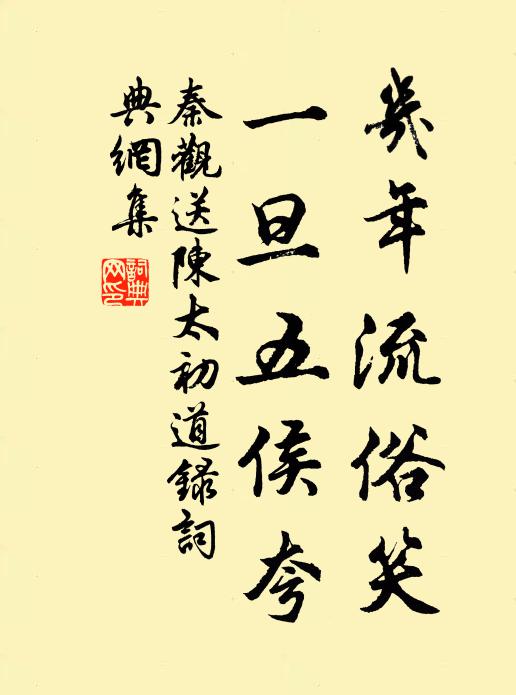 幾年流俗笑
一旦五侯夸
秦觀送陳太初道録詞
典網集
詞典網印